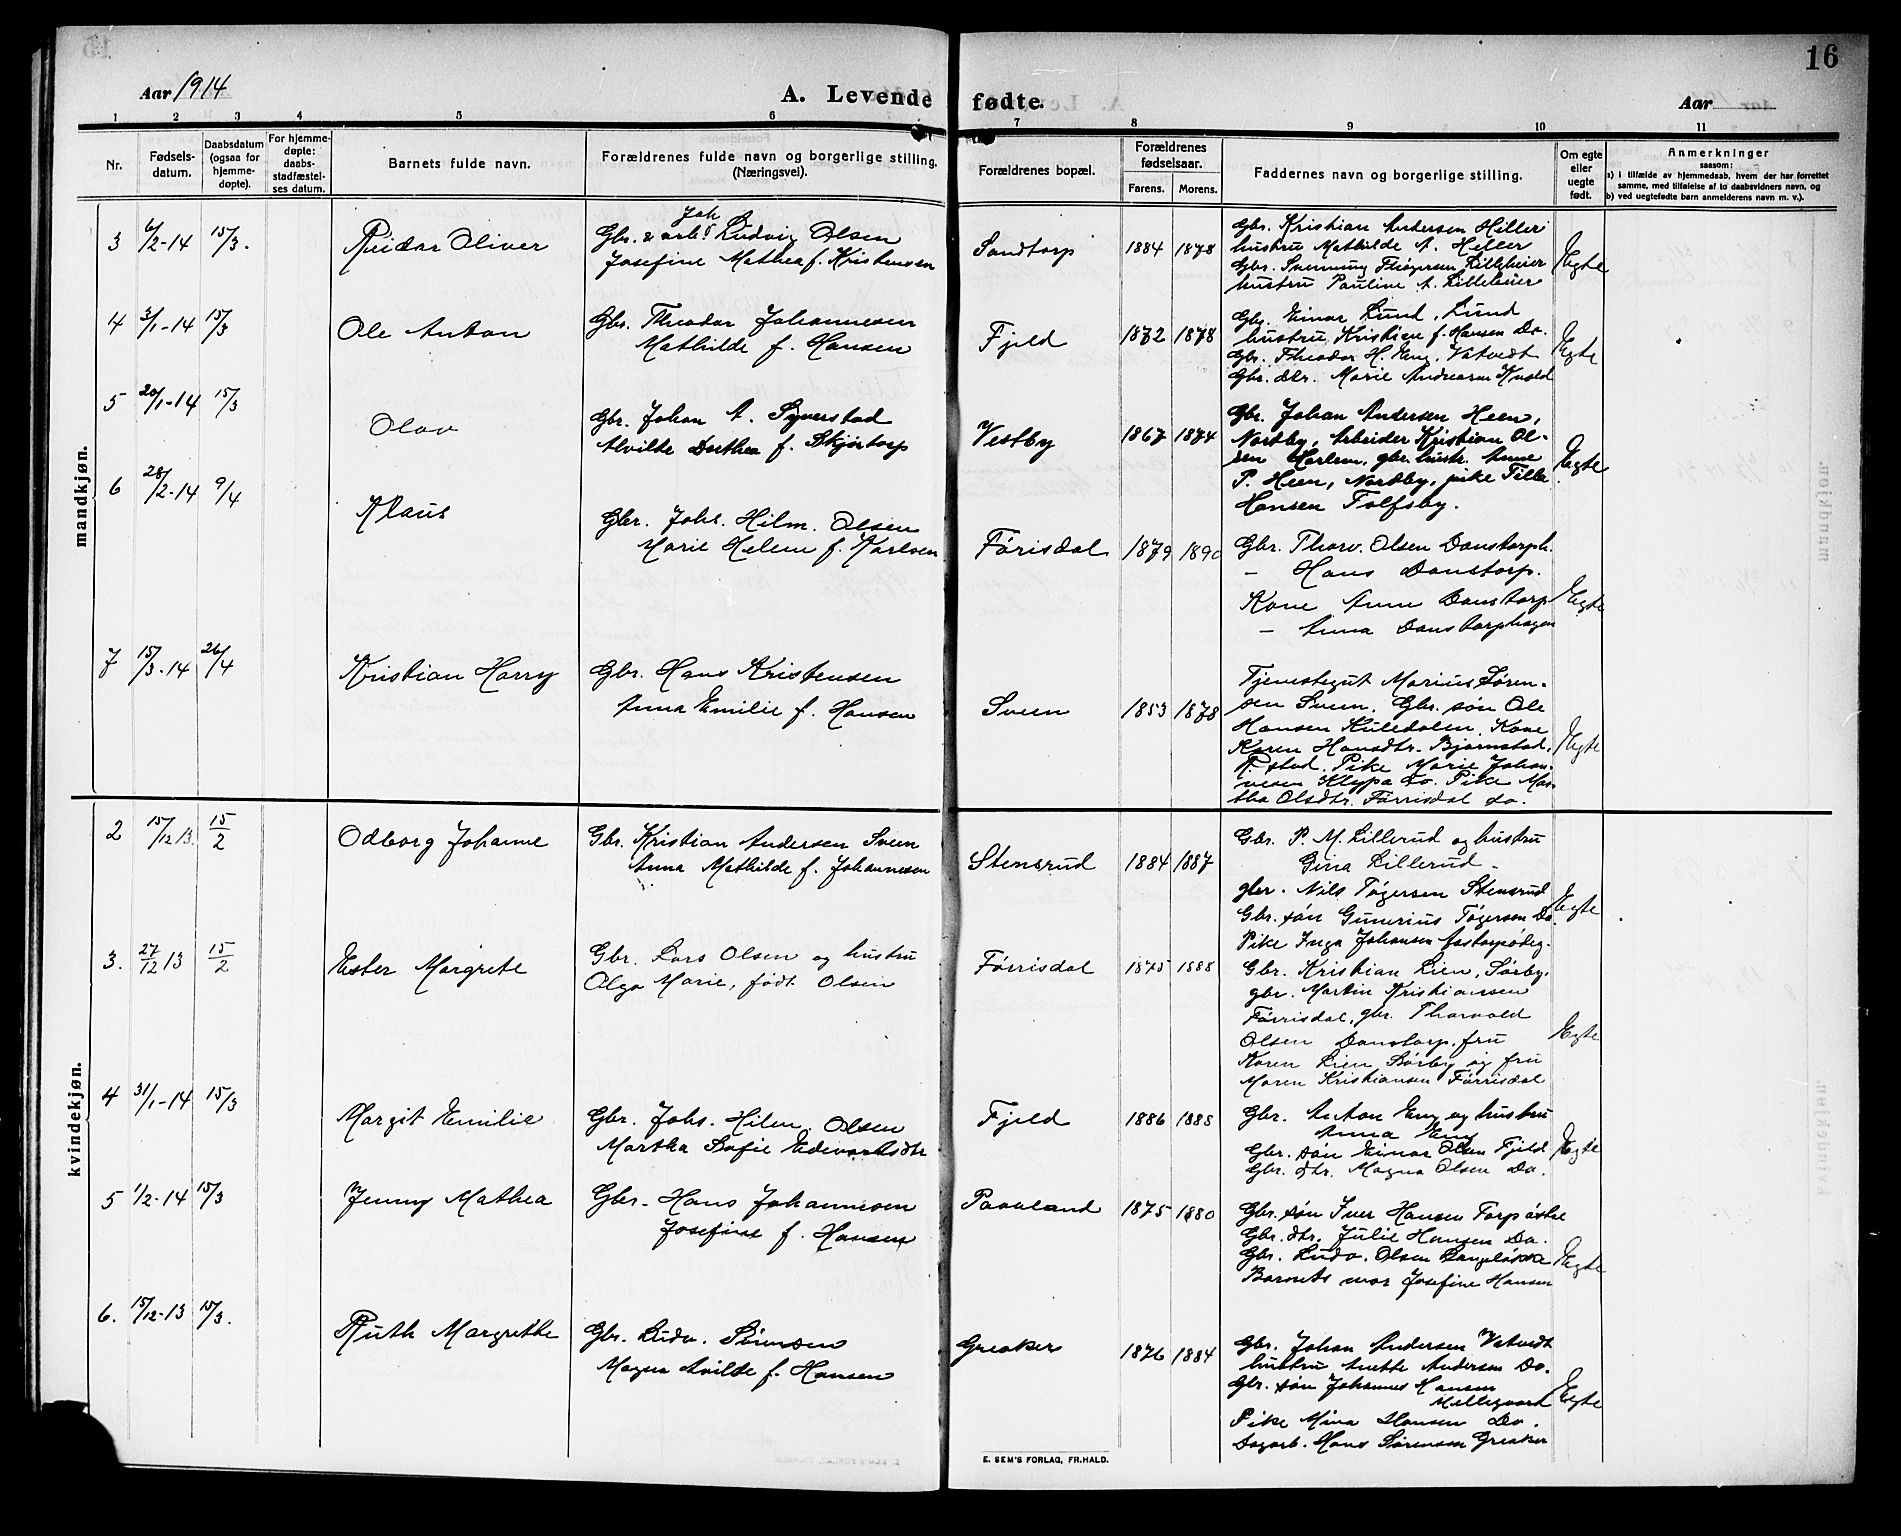 16
Aar 1914
A. Levende fødte.
Aar
1 2 3 4 5 6 7 8 9 10 11
Nr.
Fødsels-
datum.
Daabsdatum
(ogsaa for
hjemme-
døpte).
For hjemme-
døpte:
daabs-
stadfæstel-
ses datum.
Barnets fulde navn.
Forældrenes fulde navn og borgerlige stilling.
(Næringsvei).
Forældrenes bopæl.
Forældrenes
fødselsaar.
Farens. Morens.
Faddernes navn og borgerlige stilling.
Om egte
eller
uegte
født.
Anmerkninger
saasom:
a) i tilfælde av hjemmedaab, hvem der har forrettet
samme, med tilføielse af to daabsvidners navn, og
b) ved uegtefødte barn anmelderens navn m. v.).
mandkjøn.
3 6/2-14 15/3. Reidar Oliver
Joh
Gbr. & arb. Ludvig Olsen
Josefine Mathea f. Kristensen
Sandtorp 1884 1878
Gbr. Kristian Andersen Hiller
hustru Mathilde A. Hiller
Gbr. Svenning Thøgersen Lilleheier
hustru Pauline A. Lilleheier
Egte
4 3/1-14 15/3 Ole Anton
Gbr. Theodor Johannesen
Mathilde f. Hansen
Fjeld 1872 1878
Gbr. Einar Lund, Lund
hustru Kristine f. Hansen Do.
Gbr. Theodor H. Eng, Vatvedt
Gbr. dtr. Marie Andersen
Egte
5 20/1-14 15/3 Olav
Gbr. Johan A. Syverstad
Alvilde Dorthea f. Skjørtorp
Vestby 1867 1874
Gbr. Johan Andersen Heen,
Nordby, Arbeider Kristian Ol-
sen Horlen, gbr. hustr. Anne
P. Heen, Nordby, pike Tilla
Hansen Tolfsby.
Egte
6 28/2-14 9/4 Klaus
Gbr. Johs. Hilm. Olsen
Marie Helene f. Karlsen
Førisdal 1879 1890
Gbr. Thorv. Olsen Danstorph.
— Hans Danstorp.
Kone Anne Danstorp
— Anna Danstorphagen
Egte
7 15/3-14 26/4 Kristian Harry
Gbr. Hans Kristensen
Anna Emilie f. Hansen
Sveen 1853 1878
Tjenestegut Marius Søren-
sen Sveen. Gbr. søn Ole
Hansen Huledalen. Kone
Karen Hansdtr. Bjørnstad,
R.stad. Pike Marie Johan-
nesen Klypa do. Pike Mar-
tha Olsdtr. Førrisdal do.
Egte
kvindekjøn.
2 15/12 13. 15/2 Odborg Johanne
Gbr. Kristian Andersen Sveen
Anna Mathilde f. Johannesen
Stensrud 1884 1887
Gbr. P. M. Lillerud og hustru
Gina Lillerud -
gbr. Nils Tøgersen Stensrud
Gbr. søn Gunerius Tøgersen Do
Pike Inga Johansen Aastorpødeg.
Egte
3. 27/12 13 15/2 Ester Margrete
Gbr. Lars Olsen og hustru
Olga Marie, født Olsen
Førrisdal 1845 1888
Gbr. Kristian Lien, Sørby,
gbr. Martin Kristiansen
Førrisdal, gbr. Thorvald
Olsen Danstorp, fru
Karen Lien Sørby og fru
Maren Kristiansen Førrisdal
Egte
4 31/1-14 15/3 Margit Emilie
Gbr. Johs. Hilm. Olsen
Martha Sofie Edevardsdtr
Fjeld 1886 1888
Gbr. Anton Eng og hustru
Anna Eng
Gbr. søn Einar Olsen Fjeld
Gbr. dtr. Magna Olsen Do.
Egte
5 1/2-14 15/3 Jenny Mathea
Gbr. Hans Johannesen
Josefine f. Hansen
Paaland 1875 1880
Gbr. søn Iver Hansen Torp østre
Gbr. dtr. Julie Hansen Do.
Gbr. Ludv. Olsen Langeløkke
Barnets mor Josefine Hansen
Egte
6. 15/12-13 15/3. Ruth Margrethe
Gbr. Ludv. Sørensen
Magna Alvilde f. Hansen
Greaker 1876 1884
Gbr. Johan Andersen Vatvedt
hustru Anette Andersen Do.
Gbr. søn Johannes Hansen
Millegaard
Pike Mina Hansen Do.
Sagarb. Hans Sørensen Greaker
Egte
E. SEM'S FORLAG, FR.HALD.